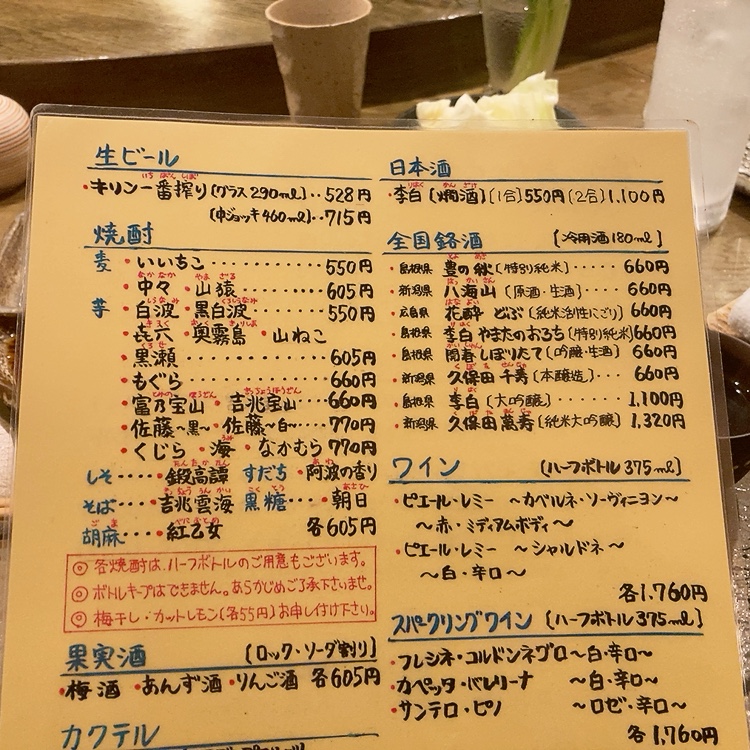 生ビール
・キリン一番搾り〔グラス290ml〕‥528円
〔中ジョッキ460ml〕‥715円
焼酎
麦 ・いいちこ ・・・・・・・・・・ 550円
・中々 ・山猿 ・・・・・・ 605円
芋 ・白波 ・黒白波 ・・・・ 550円
・㐂六 ・奥霧島 ・山ねこ
・黒瀬 ・・・・・・・・・・ 605円
・もぐら ・・・・・・・・・ 660円
・富乃宝山 ・吉兆宝山・・・660円
・佐藤~黒~ ・佐藤~白~・・770円
・くじら ・海 ・なかむら 770円
しそ・・・・鍛高譚 すだち ・阿波の香り
そば・・・・吉兆雲海 黒糖・・・朝日
胡麻・・・・紅乙女 各605円
◎各焼酎は、ハーフボトルのご用意もございます。
◎ボトルキープはできません。あらかじめご了承下さいませ。
◎梅干し・カットレモン(各55円)お申し付け下さい。
果実酒 〔ロック・ソーダ割り〕
・梅酒 ・あんず酒 ・りんご酒 各605円
カクテル
日本酒
・李白〔燗酒〕〔1合〕550円〔2合〕1,100円
全国銘酒 〔冷用酒180ml〕
・島根県 豊の秋〔特別純米〕・・・・・ 660円
・新潟県 八海山〔原酒・生酒〕・・・・ 660円
・広島県 花酔 どぶ〔純米活性にごり〕・・ 660円
・島根県 李白 やまたのおろち〔特別純米〕660円
・島根県 開春 しぼりたて〔吟醸・生酒〕・・660円
・新潟県 久保田 千寿〔本醸造〕・・・・ 660円
・島根県 李白〔大吟醸〕・・・・・ 1,100円
・新潟県 久保田 萬寿〔純米大吟醸〕・・1,320円
ワイン 〔ハーフボトル375ml〕
・ピエール・レミー ~カベルネ・ソーヴィニヨン~
~赤・ミディアムボディ~
・ピエール・レミー ~シャルドネ~
~白・辛口~
各1,760円
スパークリングワイン〔ハーフボトル375ml〕
・フレシネ・コルドンネグロ~白・辛口~
・カペッタ・バレリーナ ~白・辛口~
・サンテロ・ピノ ~ロゼ・辛口~
各1,760円